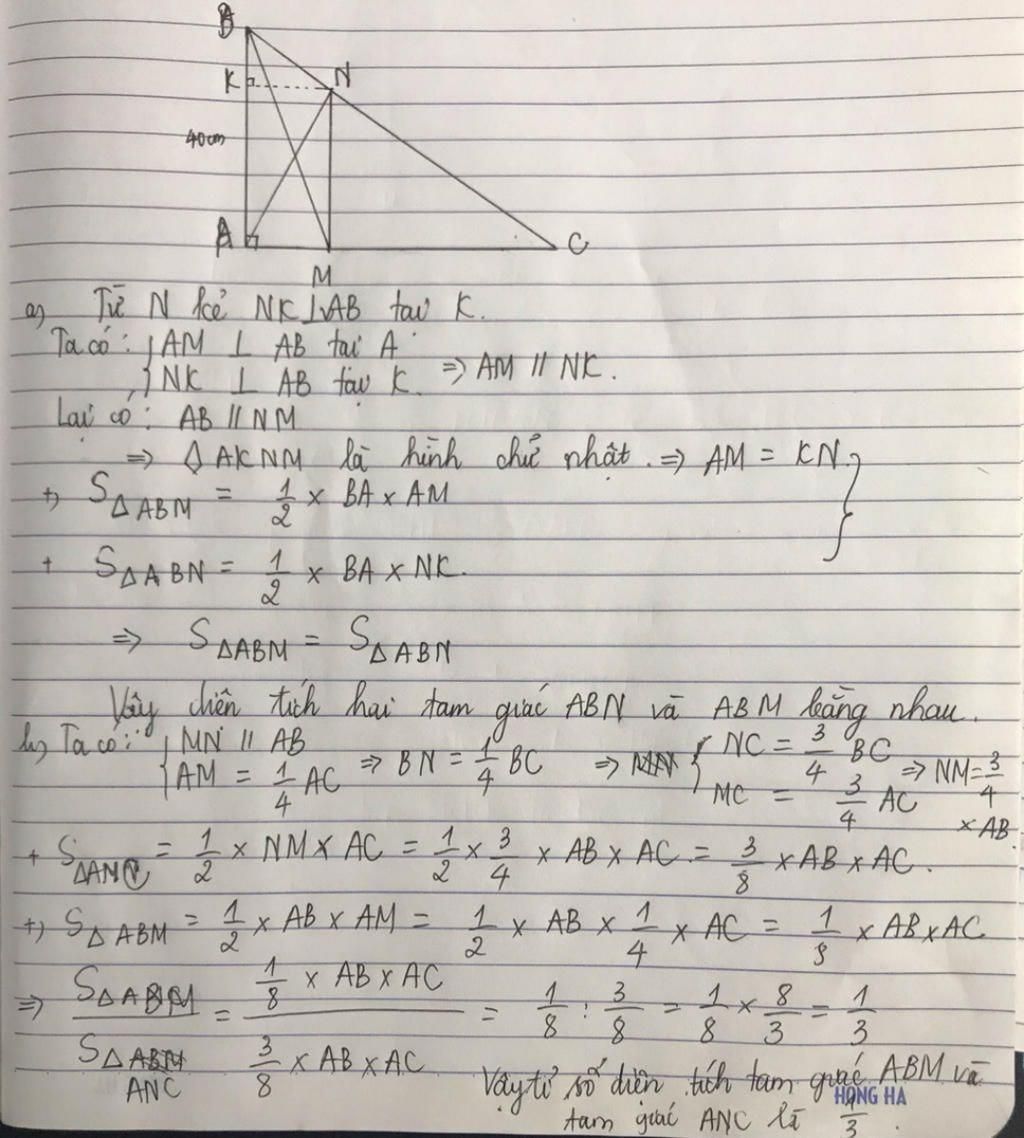 B
K
N
40cm
A
M
C
a) Từ N kẻ NK ⊥ AB tại K.
Ta có: { AM ⊥ AB tại A
NK ⊥ AB tại K. => AM // NK.
Lại có: AB // NM
=> ◊ AKNM là hình chữ nhật. => AM = KN. }
+) S△ABM = 1/2 × BA × AM
+ S△ABN = 1/2 × BA × NK.
=> S△ABM = S△ABN
Vậy diện tích hai tam giác ABN và ABM bằng nhau.
b) Ta có: { MN // AB
AM = 1/4 AC => BN = 1/4 BC => { NC = 3/4 BC
MC = 3/4 AC => NM = 3/4 × AB.
+ S△ANC = 1/2 × NM × AC = 1/2 × 3/4 × AB × AC = 3/8 × AB × AC.
+) S△ABM = 1/2 × AB × AM = 1/2 × AB × 1/4 × AC = 1/8 × AB × AC
=> S△ABM / S△ANC = (1/8 × AB × AC) / (3/8 × AB × AC) = 1/8 : 3/8 = 1/8 × 8/3 = 1/3
Vậy tỉ số diện tích tam giác ABM và
tam giác ANC là 1/3.
HONG HA